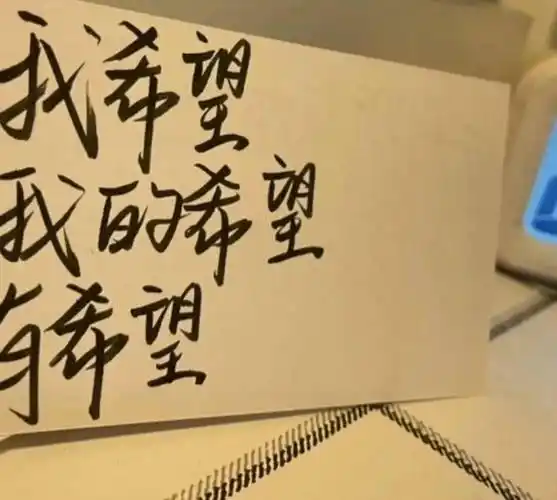 我希望
我的希望
有希望